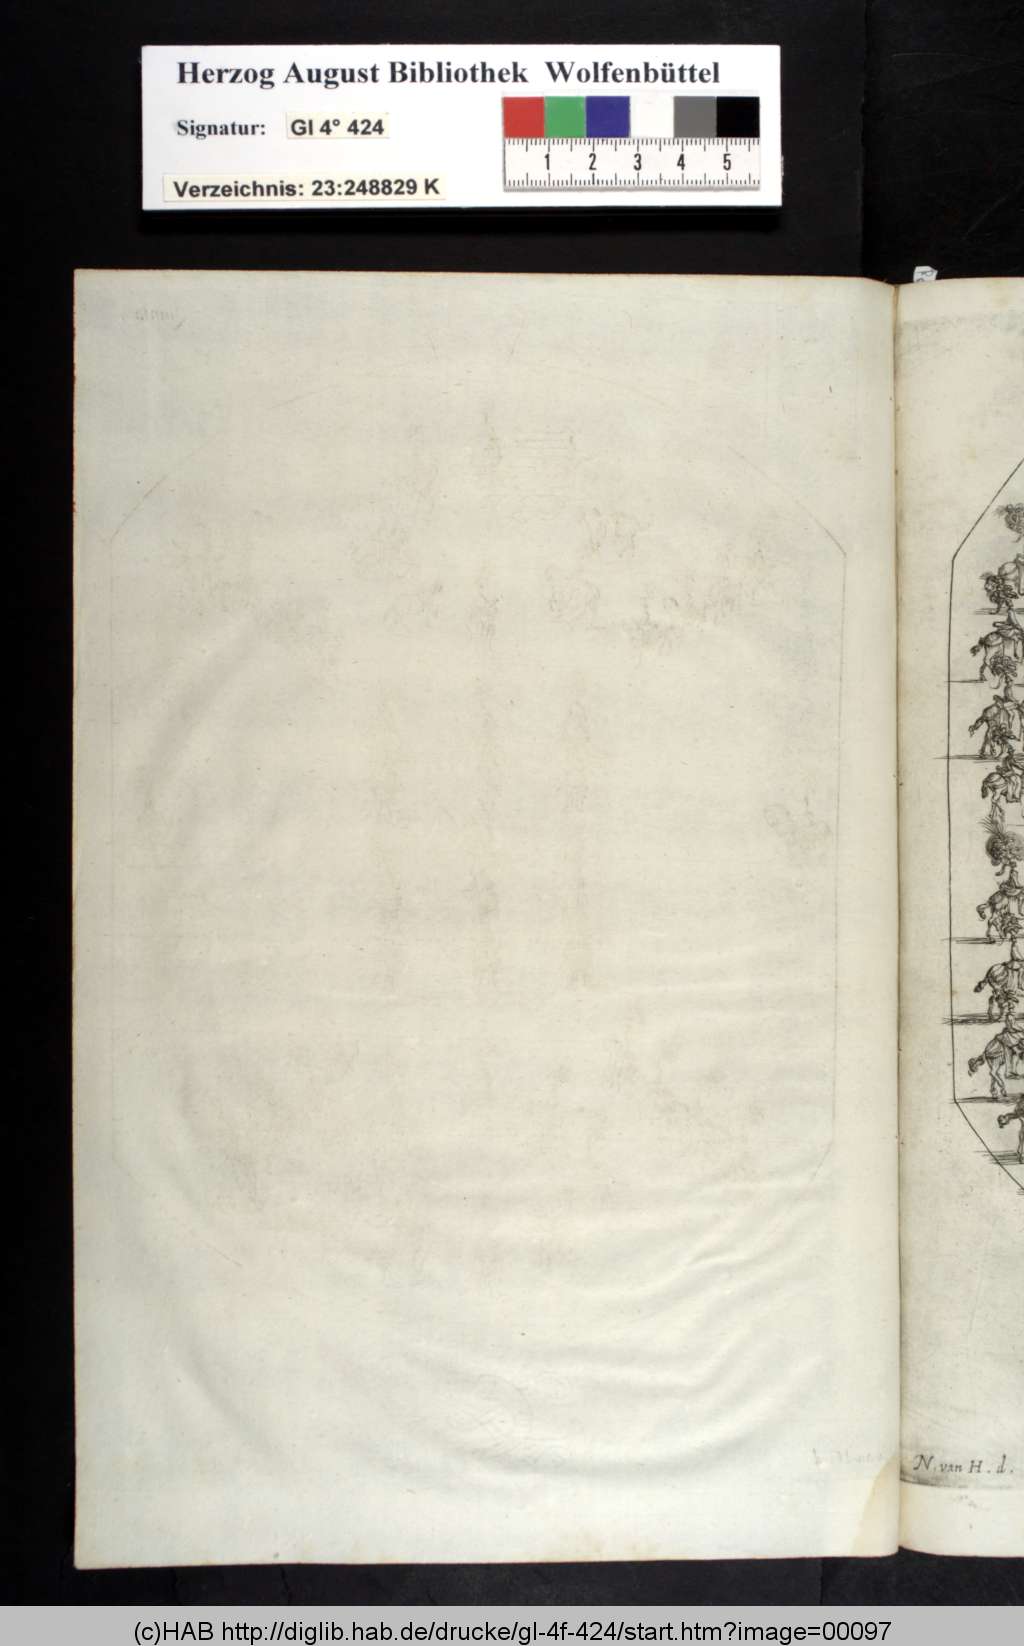 Herzog August Bibliothek Wolfenbüttel
Signatur: Gl 4° 424
1 2 3 4 5
Verzeichnis: 23:248829 K
N. van H. d.
(c)HAB http://diglib.hab.de/drucke/gl-4f-424/start.htm?image=00097